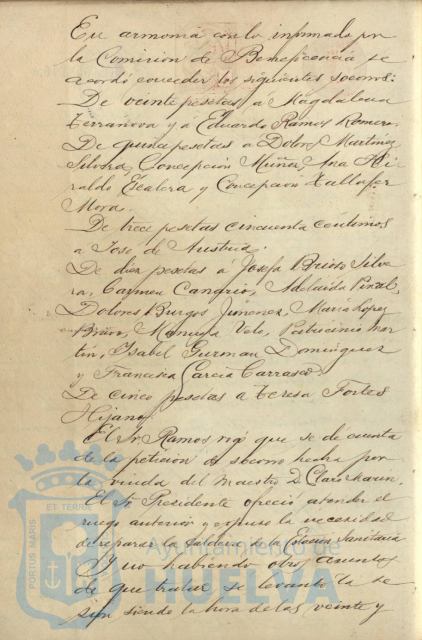 En armonia con lo informado por
la Comision de Beneficencia se
acordó conceder los siguientes socorros:
De veinte pesetas á Magdalena
Terranova y á Eduardo Ramos Romero.
De quince pesetas á Dolores Martinez
Silvera, Concepcion Muñoz, Ana
Escalera y Concepcion
Mora.
De trece pesetas cincuenta centimos
a Jose de Austria.
De diez pesetas á Josefa Brioso Silve
ra, Carmen Canario, Adelaida
Dolores Burgos Jimenez, Maria Lopez
Manuela Patrocinio Mar
tin, Isabel Guzman Dominguez
y Francisca Garcia Carrasco.
De cinco pesetas a Teresa Fortes
Hijano.
El Sr. Ramos rogó que se de cuenta
de la peticion de socorro hecha por
la viuda del Maestro D. Claro
El Sr. Presidente ofreció atender el
ruego anterior y expuso la necesidad
de reparar la caldera de la Estacion Sanitaria
Y no habiendo otros asuntos
de que tratar se levantó la se
sion siendo la hora de las veinte y
PORTUS MARIS ET TERRE
Ayuntamiento de
HUELVA